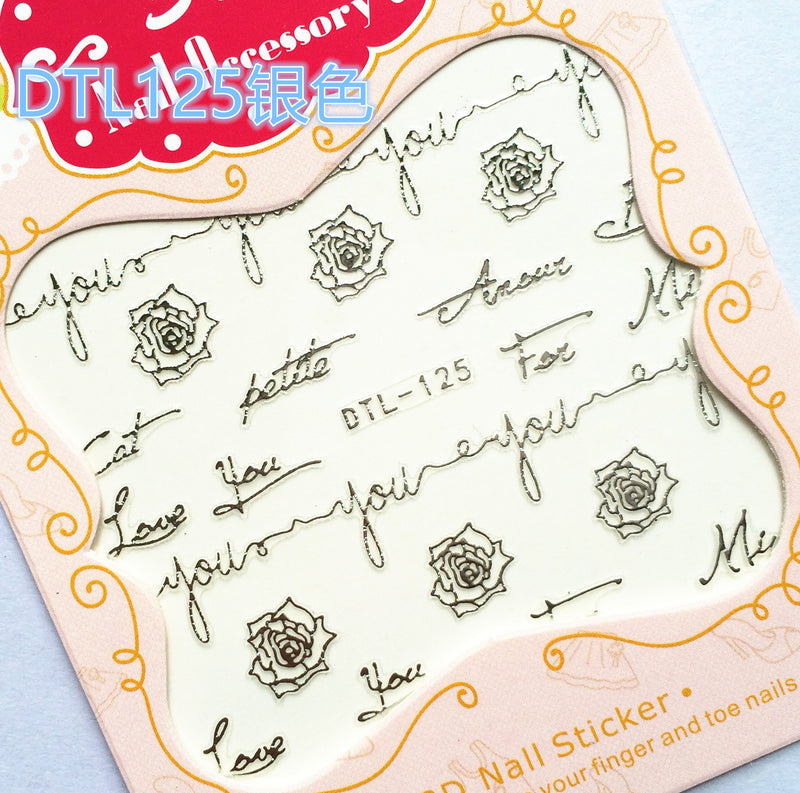 Nail Accessory
DTL125银色
you you you
Amour
petite
For
DTL-125
Love You
you you you
Love You
Nail Sticker
your finger and toe nails